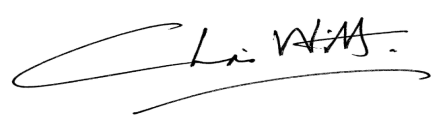 Chris Witts.